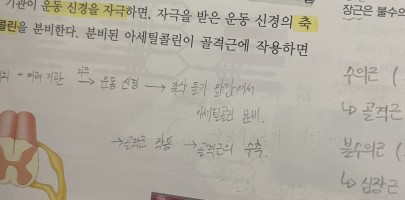 기관이 운동 신경을 자극하면, 자극을 받은 운동 신경의 축
콜린을 분비한다. 분비된 아세틸콜린이 골격근에 작용하면
여러 기관 → 운동 신경 → 축삭 돌기 말단에서
아세틸콜린 분비.
→ 골격근 작용 → 골격근의 수축.
장근은 불수의
수의근 (
↳ 골격근
불수의근 (
↳ 심장근